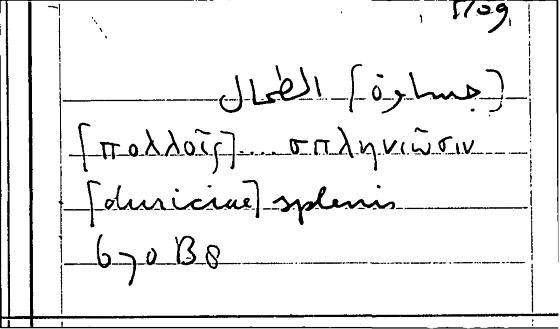 [جساوة] الطحال
[πολλοῖς].... σπληνιῶσιν
[duriciae] splenis
670 B8